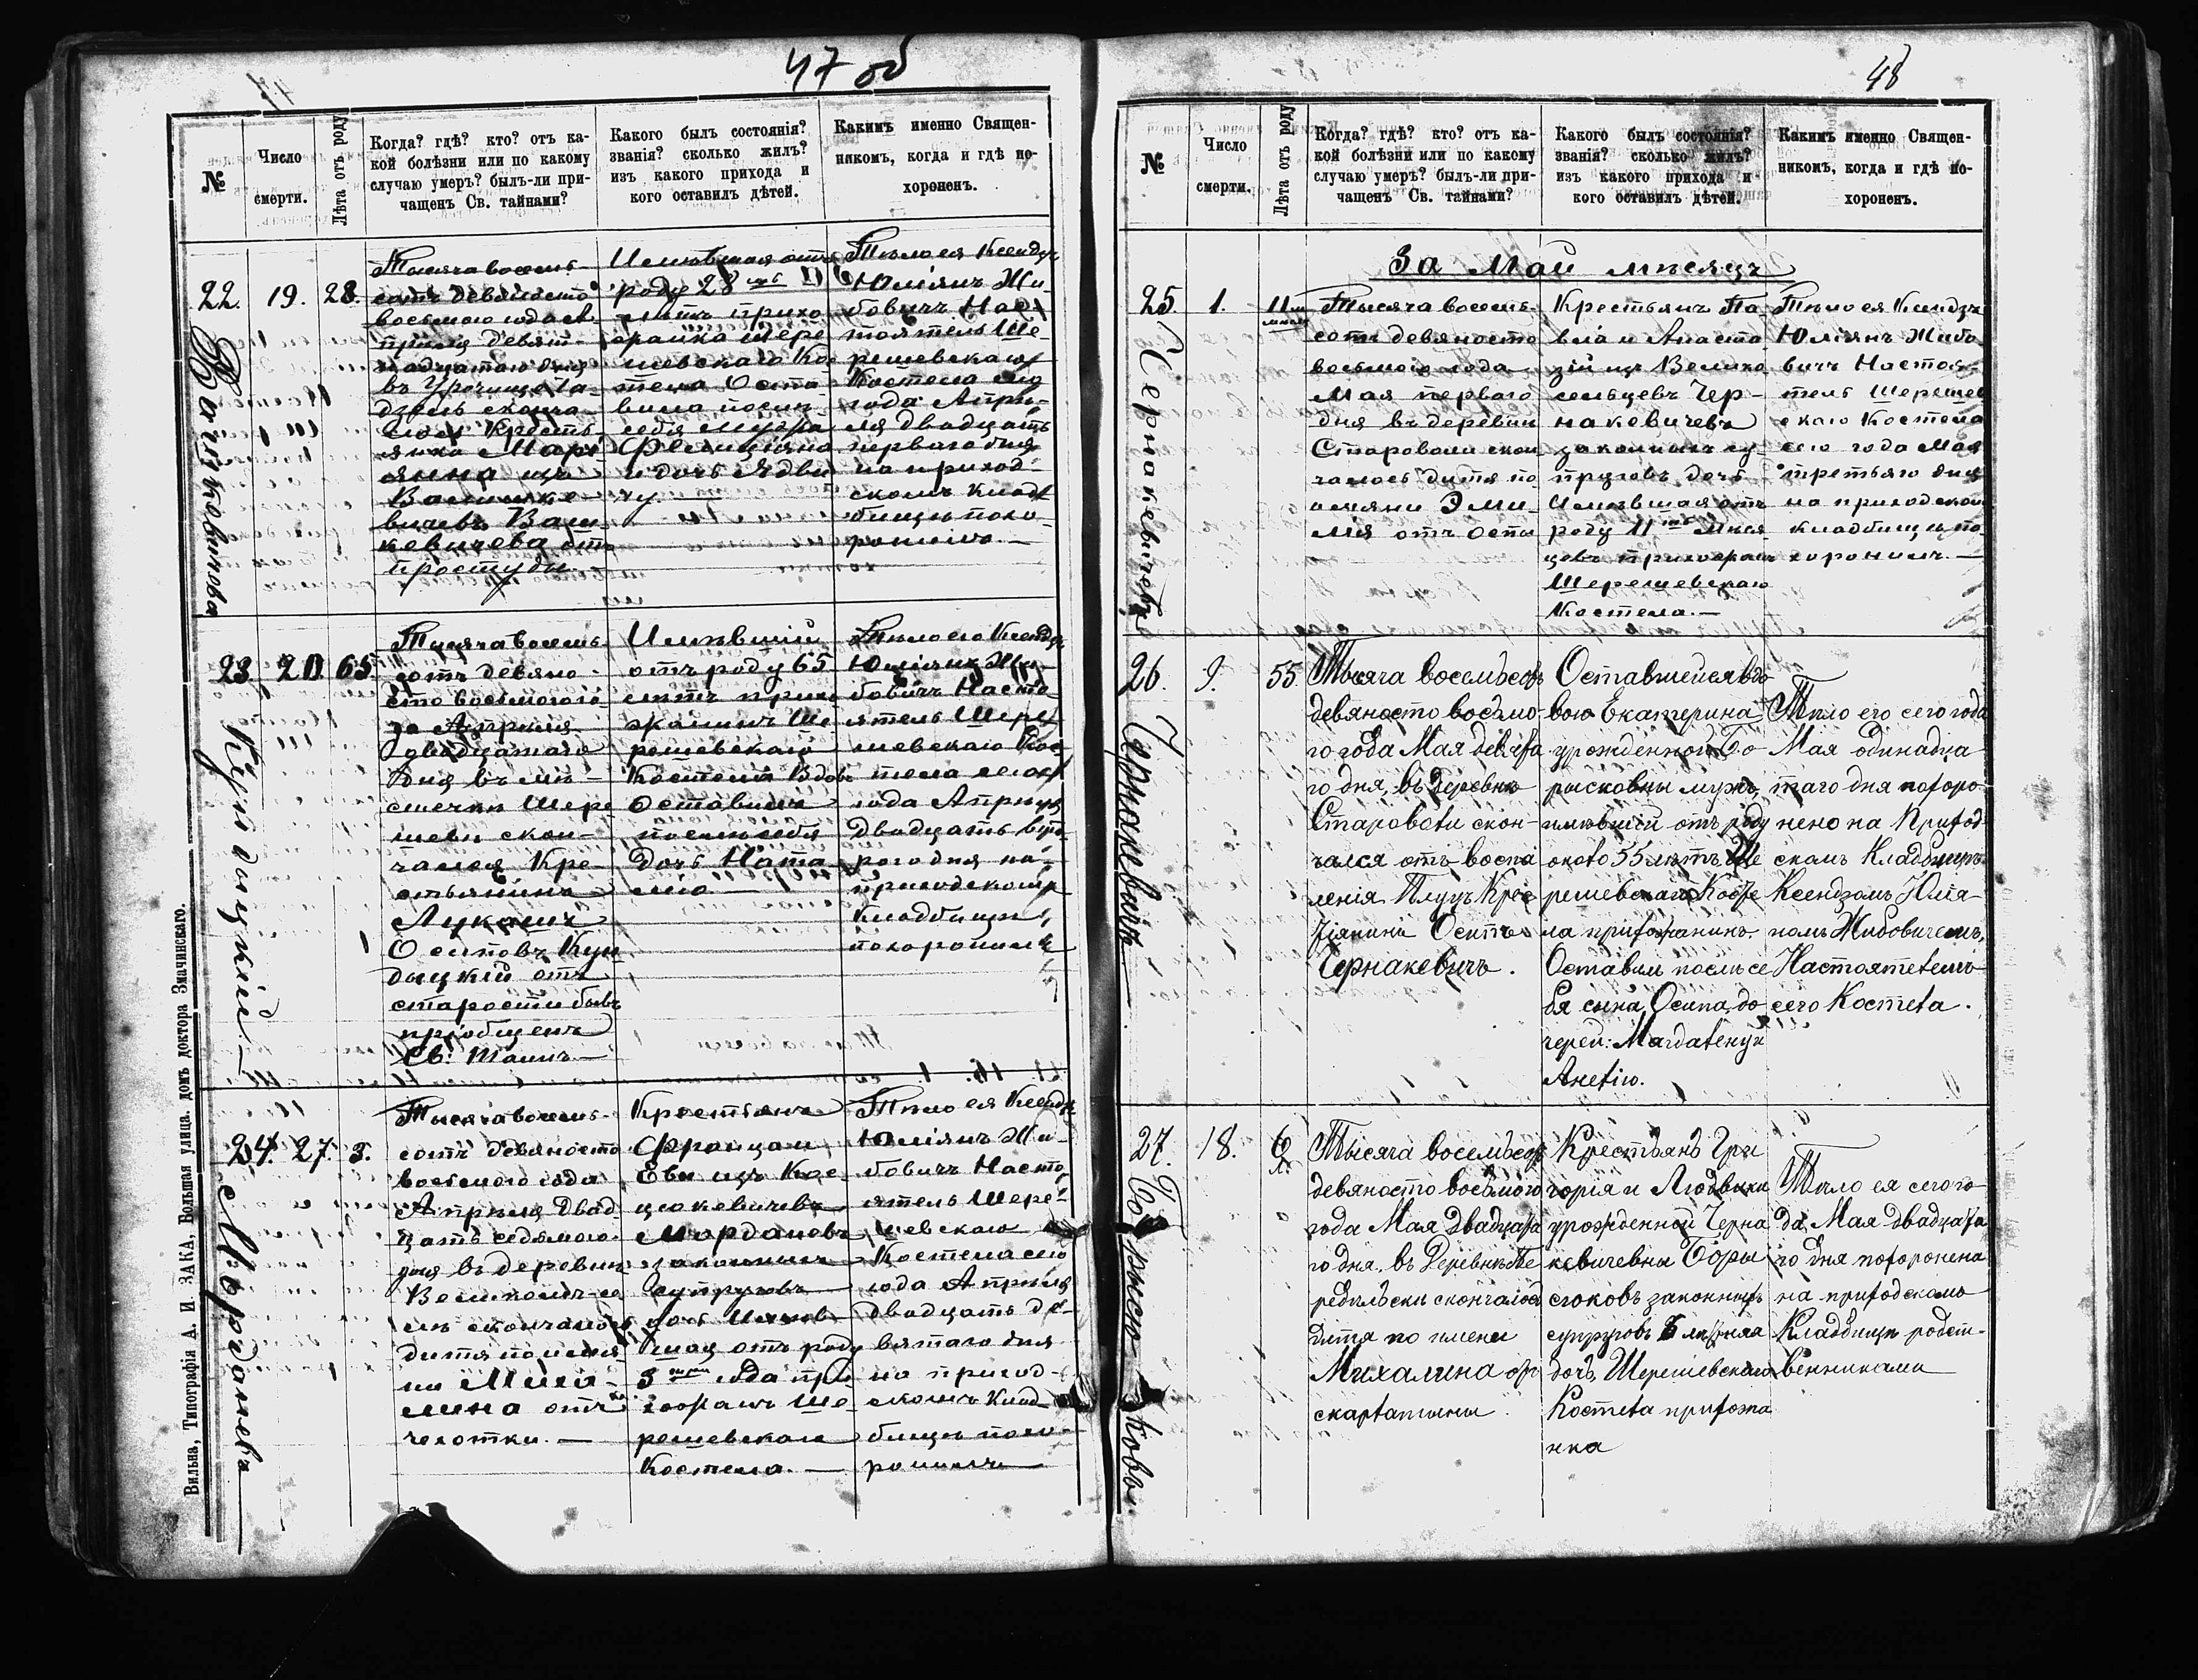 47 об
№
Число
смерти.
Лѣта отъ роду
Когда? гдѣ? кто? отъ ка-
кой болѣзни или по какому
случаю умеръ? былъ-ли при-
чащенъ Св. тайнами?
Какого былъ состоянія?
званія? сколько жилъ?
изъ какого прихода и
кого оставилъ дѣтей.
Какимъ именно Священ-
никомъ, когда и гдѣ по-
хороненъ.
22.
19.
28.
Тысяча восемь-
сотъ девяносто
восьмого года А
прѣля девят-
надцатаго дня
въ Урочищѣ
скончა-
лась Кресть
янка Марі
янна изъ
Васильке-
вичевъ Ваш
кевичева отъ
простуды.
Имѣвшая отъ
роду 28
лѣтъ прихо
жанка Шере
шевскаго Ко
стела Оста
вила послѣ
себя мужа
Фелиціяна
и дочь Ядви
гу.
Тѣло ея Ксендзъ
Юліянъ Жи-
бовичъ Нас
тоятель Ше-
решевскаго
Костела сего
года Апрѣ-
ля двадцать
перваго дня
на приход-
скомъ клад
бищѣ похо-
ронилъ.
23.
20.
65.
Кундицкій
Тысяча восемь
сотъ девяно-
сто восьмого го
да Апрѣля
двадцатаго
дня въ мѣ-
стечкѣ Шере
шевѣ скон-
чался Кре-
стьянинъ
Лукашъ
Осиповъ Кун
дыцкій отъ
старости бывъ
пріобщенъ
Св. Таинъ.
Имѣвшій
отъ роду 65
лѣтъ прихо
жанинъ Ше
решевскаго
Костела Вдовъ
Оставилъ
послѣ себя
дочь Ната
лію
Тѣло его Ксендзъ
Юліянъ Жи-
бовичъ Насто
ятель Шере
шевскаго Кос
тела сего
года Апрѣля
двадцать вто
рого дня на
приходскомъ
кладбищѣ
похоронилъ
24.
27.
3.
Мордановъ
Тысяча восемь-
сотъ девяносто
восьмого года
Апрѣля двад
цать седьмого
дня въ деревнѣ
Великомъ-се
лѣ скончалось
дитя по имени
Миха-
лина отъ
чехотки.
Крестьянъ
Францам
Евы изъ Кос-
цюкевичевъ
Мордановъ
законныхъ
Супруговъ
дочь Имѣв
шая отъ роду
3 года при
хожанъ Ше
решевскаго
Костела.
Тѣло ея Ксендзъ
Юліянъ Жи-
бовичъ Насто
ятель Шере-
шевскаго
Костела сего
года Апрѣля
двадцать де-
вятаго дня
на приход-
скомъ Клад
бищѣ похо-
ронилъ
Вильна, Типографія А. И. ЗАКА, Большая улица. домъ доктора Змачинскаго.
48
№
Число
смерти.
Лѣта отъ роду
Когда? гдѣ? кто? отъ ка-
кой болѣзни или по какому
случаю умеръ? былъ-ли при-
чащенъ Св. тайнами?
Какого былъ состоянія?
званія? сколько жилъ?
изъ какого прихода и
кого оставилъ дѣтей.
Какимъ именно Священ-
никомъ, когда и гдѣ по-
хороненъ.
За Май мѣсяцъ
25.
1.
11
Чернакевичевъ
Тысяча восемь-
сотъ девяносто
восьмого года
Мая перваго
дня въ деревни
Староволи скон
чалось дитя по
имяни Эми-
лія отъ оспы
Крестьянъ Па
вла и Анаста
зіи изъ Велико
сельцевъ Чер-
накевичевъ
законныхъ су-
пруговъ дочь
Имѣвшая отъ
роду 11 мѣся-
цевъ прихожанъ
Шерешевскаго
Костела.
Тѣло ея Ксендзъ
Юліянъ Жибо
вичъ Настоя-
тель Шерешев
скаго Костела
сего года Мая
третьяго дня
на приходскомъ
кладбищѣ по-
хоронилъ.
26.
9.
55.
Чернакевичъ
Тысяча восемьсотъ
девяносто восьмо-
го года Мая девята
го дня, въ Деревнѣ
Староволи скон-
чался отъ воспа
ленія Плуцъ Крес
тіянинъ Осипъ
Чернакевичъ.
Оставшейся вдо
вою Екатерина
урожденной Бо
рысковны мужъ,
имѣвшій отъ роду
около 55 лѣтъ Ше
решевскаго Косте
ла прихожанинъ.
Оставилъ послѣ се
бя сына Осипа, до
черей: Магдаленуи
Анелію.
Тѣло его сего года
Мая одинадца
таго дня похоро
нено на Приход
скамъ Кладбищѣ
Ксендзомъ Юлія-
номъ Жибовичемъ,
Настоятелемъ
сего Костела.
27.
18.
6
Борысюковы.
Тысяча восемьсотъ
девяносто восьмого
года Мая двадцата
го дня, въ Деревнѣ Пе
ребѣльски скончалось
дитя по имени
Михалина от
скарлатины.
Крестьянъ Гри
горія и Людвики
урожденной Черна
кевичевны Боры
сюковъ законныхъ
супруговъ 6 лѣтняя
дочь, Шерешевскаго
Костела прихожа
нка
Тѣло ея сего го-
да Мая двадцата
го дня похоронена
на приходскомъ
Кладбищѣ родст-
венниками